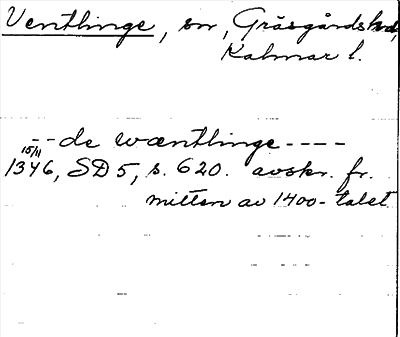 Ventlinge, sn, Gräsgårds hd,
Kalmar l.
-- de wæntlinge ----
15/11
1346, SD 5, s. 620. avskr. fr.
mitten av 1400-talet